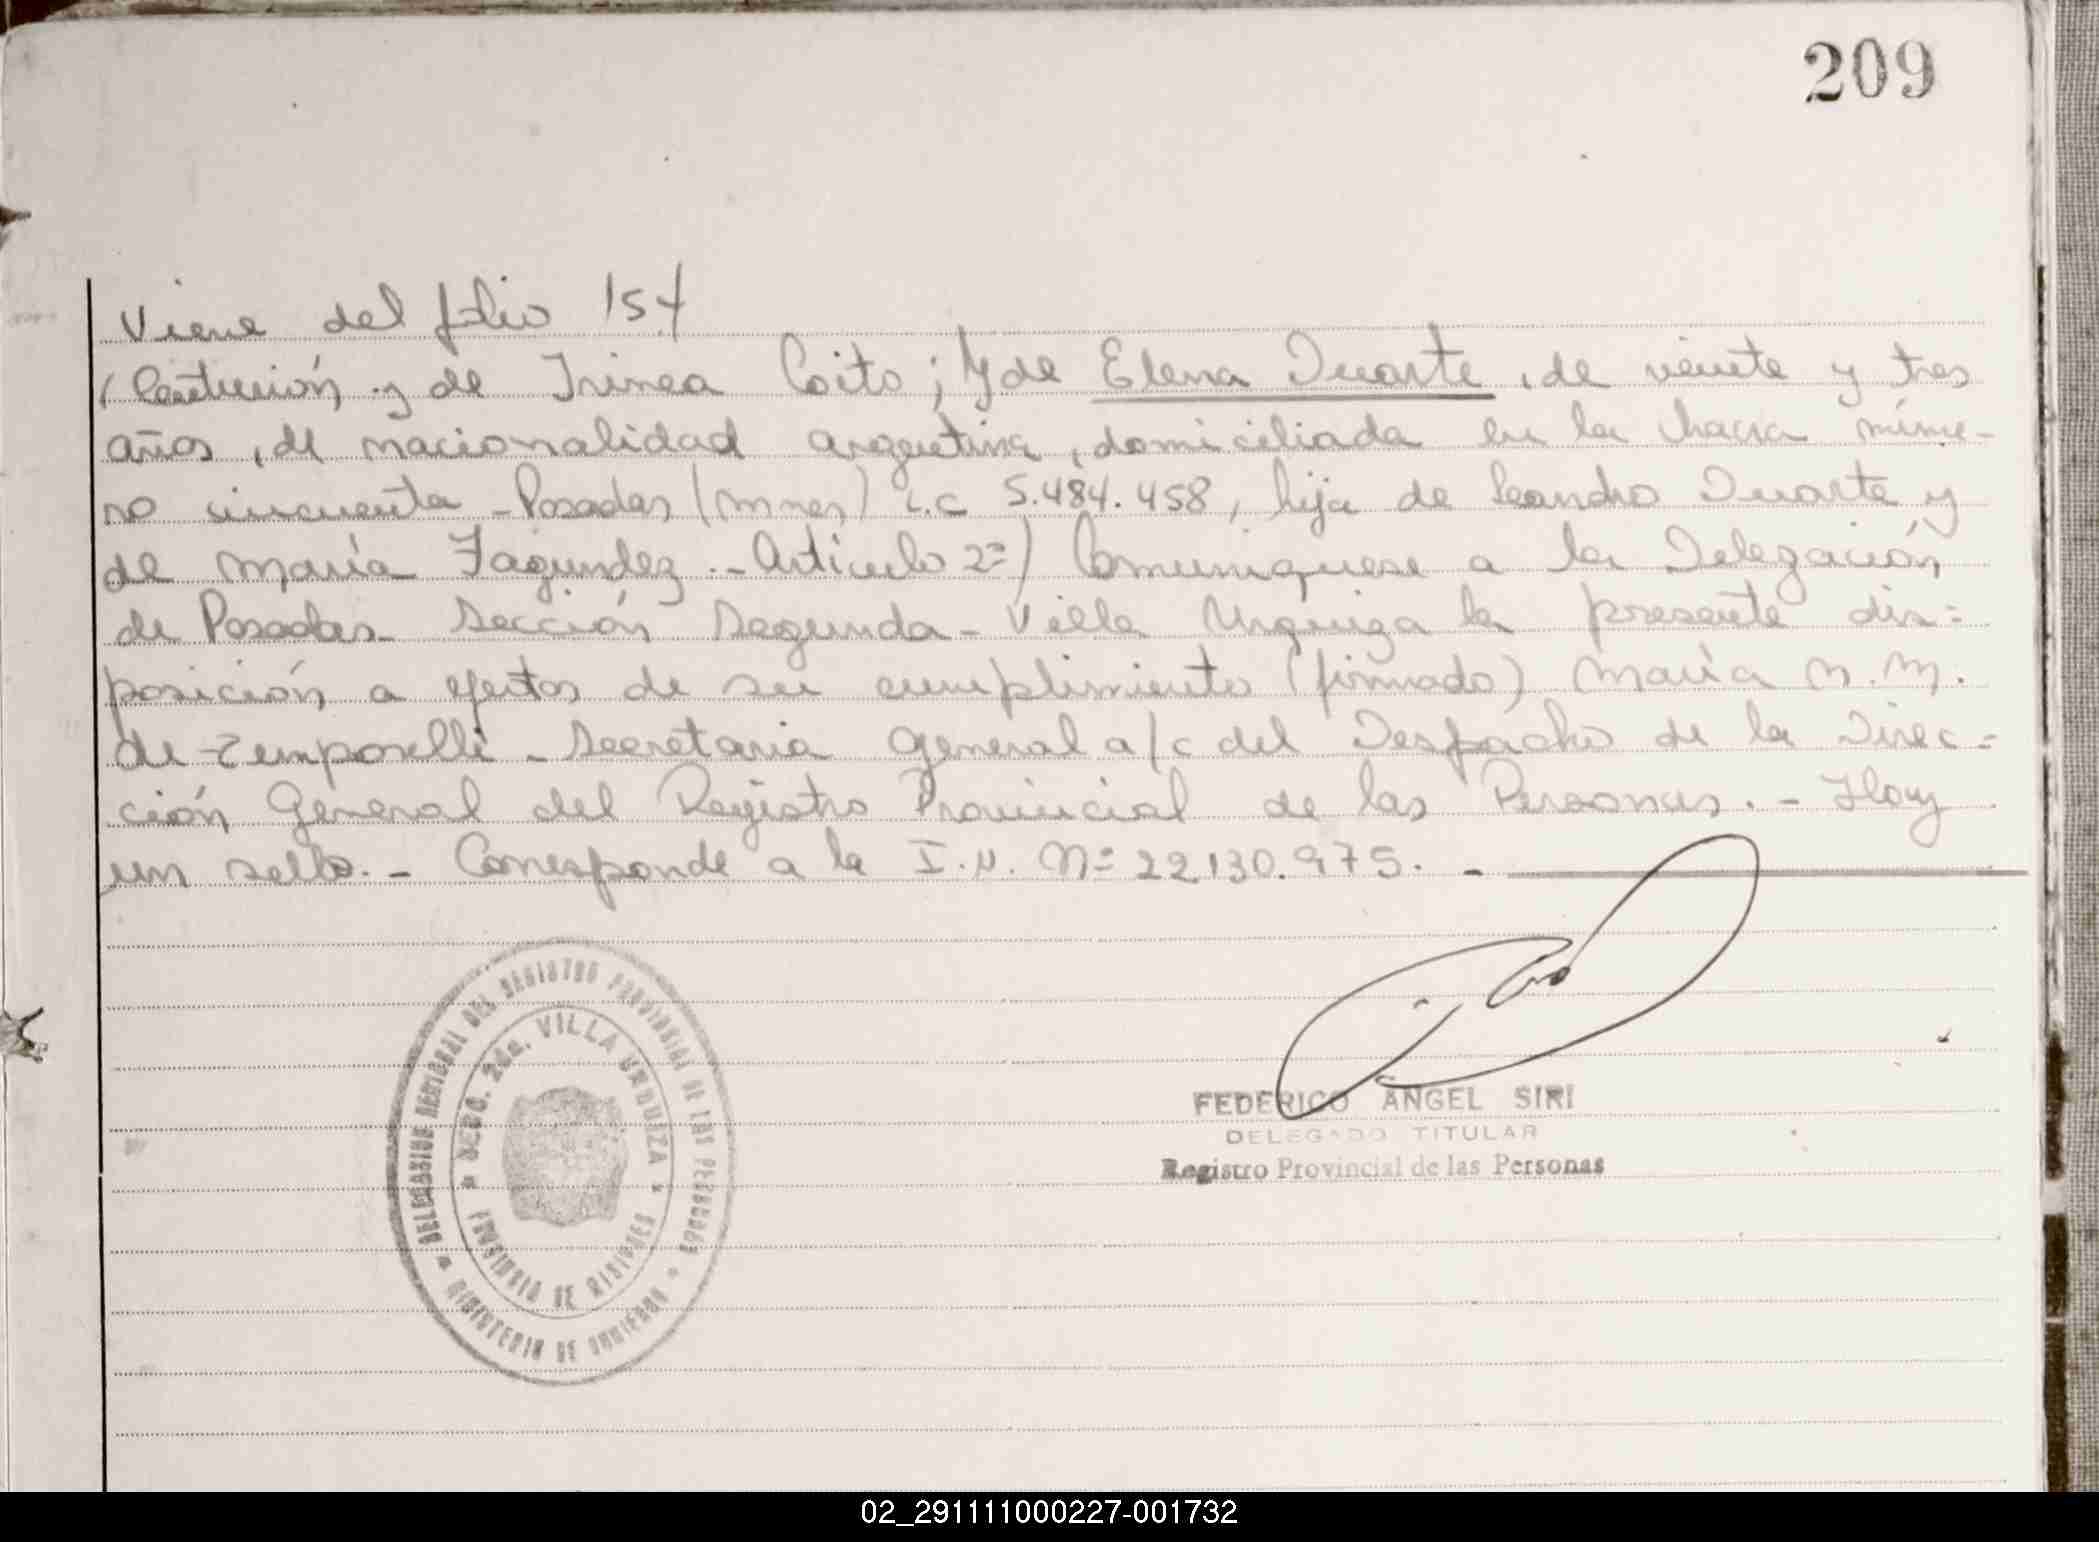 209
Viene del folio 154
Centurión y de Irinea Coito; y de Elena Duarte, de veinte y tres
años, de nacionalidad argentina, domiciliada en la chacra núme-
ro cincuenta - Posadas (Mnes) L.C 5.484.458, hija de Leandro Duarte y
de María Fagundez.- Artículo 2º) Comuníquese a la Delegación
de Posadas- Sección Segunda - Villa Urquiza la presente dis=
posición a efectos de su cumplimiento (firmado) María N. M.
de Temporelli - Secretaria General a/c del Despacho de la Direc=
ción General del Registro Provincial de las Personas.- Hay
un sello.- Corresponde a la I.N. Nº 22130.975. -
DELEGACION REGIONAL DEL REGISTRO PROVINCIAL DE LAS PERSONAS
MINISTERIO DE GOBIERNO
SECC. 2da. VILLA URQUIZA
PROVINCIA DE MISIONES
FEDERICO ANGEL SIRI
DELEGADO TITULAR
Registro Provincial de las Personas
02_291111000227-001732